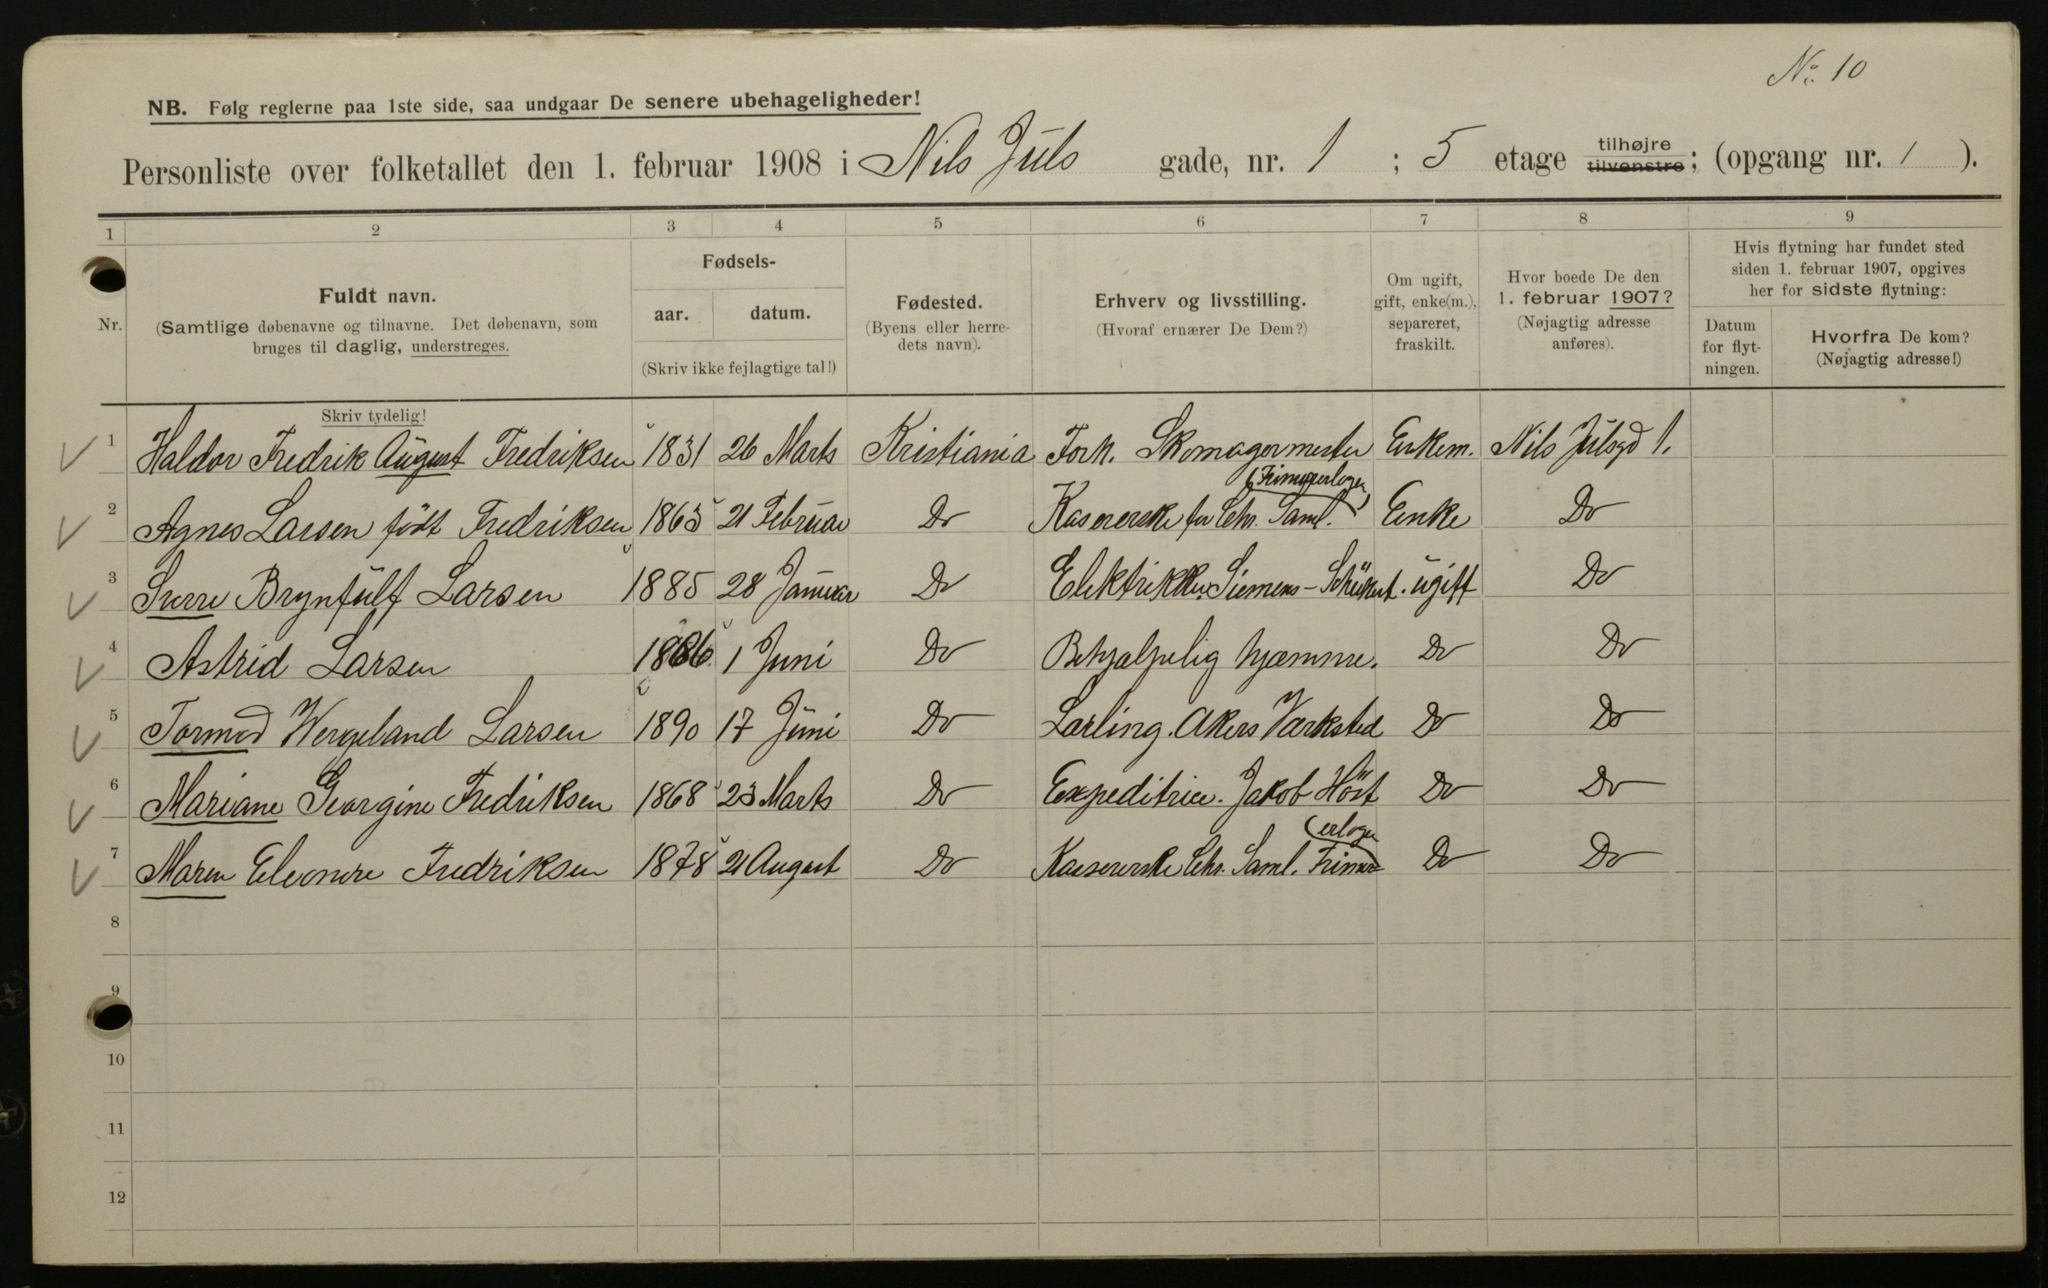 No. 10
NB. Følg reglerne paa 1ste side, saa undgaar De senere ubehageligheder!
Personliste over folketallet den 1. februar 1908 i Nils Juls gade, nr. 1 ; 5 etage tilhøjre tilvenstre; (opgang nr. 1 ).
1 2 3 4 5 6 7 8 9
Nr.
Fuldt navn.
(Samtlige døbenavne og tilnavne. Det døbenavn, som
bruges til daglig, understreges.
Skriv tydelig!
Fødsels-
aar. datum.
(Skriv ikke fejlagtige tal!)
Fødested.
(Byens eller herre-
dets navn).
Erhverv og livsstilling.
(Hvoraf ernærer De Dem?)
Om ugift,
gift, enke(m.),
separeret,
fraskilt.
Hvor boede De den
1. februar 1907?
(Nøjagtig adresse
anføres).
Hvis flytning har fundet sted
siden 1. februar 1907, opgives
her for sidste flytning:
Datum
for flyt-
ningen.
Hvorfra De kom?
(Nøjagtig adresse!)
1 Haldor Fredrik August Fredriksen 1831 26 Marts Kristiania Forh. Skomagermester Enkem. Nils Julsgd 1.
2 Agnes Larsen født Fredriksen 1863 21 Februar Do Kasererske for Chr. Saml. (Frimurerlogen) Enke Do
3 Sverre Brynfulf Larsen 1885 28 Januar Do Elektriker Siemens-Schükert. ugift Do
4 Astrid Larsen 1886 1 Juni Do Behjælpelig hjæmme. Do Do
5 Tormod Wergeland Larsen 1890 17 Juni Do Lærling. Akers Værksted Do Do
6 Mariane Georgine Fredriksen 1868 23 Marts Do Expeditrice. Jakob Höst Do Do
7 Maren Eleonore Fredriksen 1878 21 August Do Kassererske Chr. Saml. Frimurerlogen Do Do
8
9
10
11
12